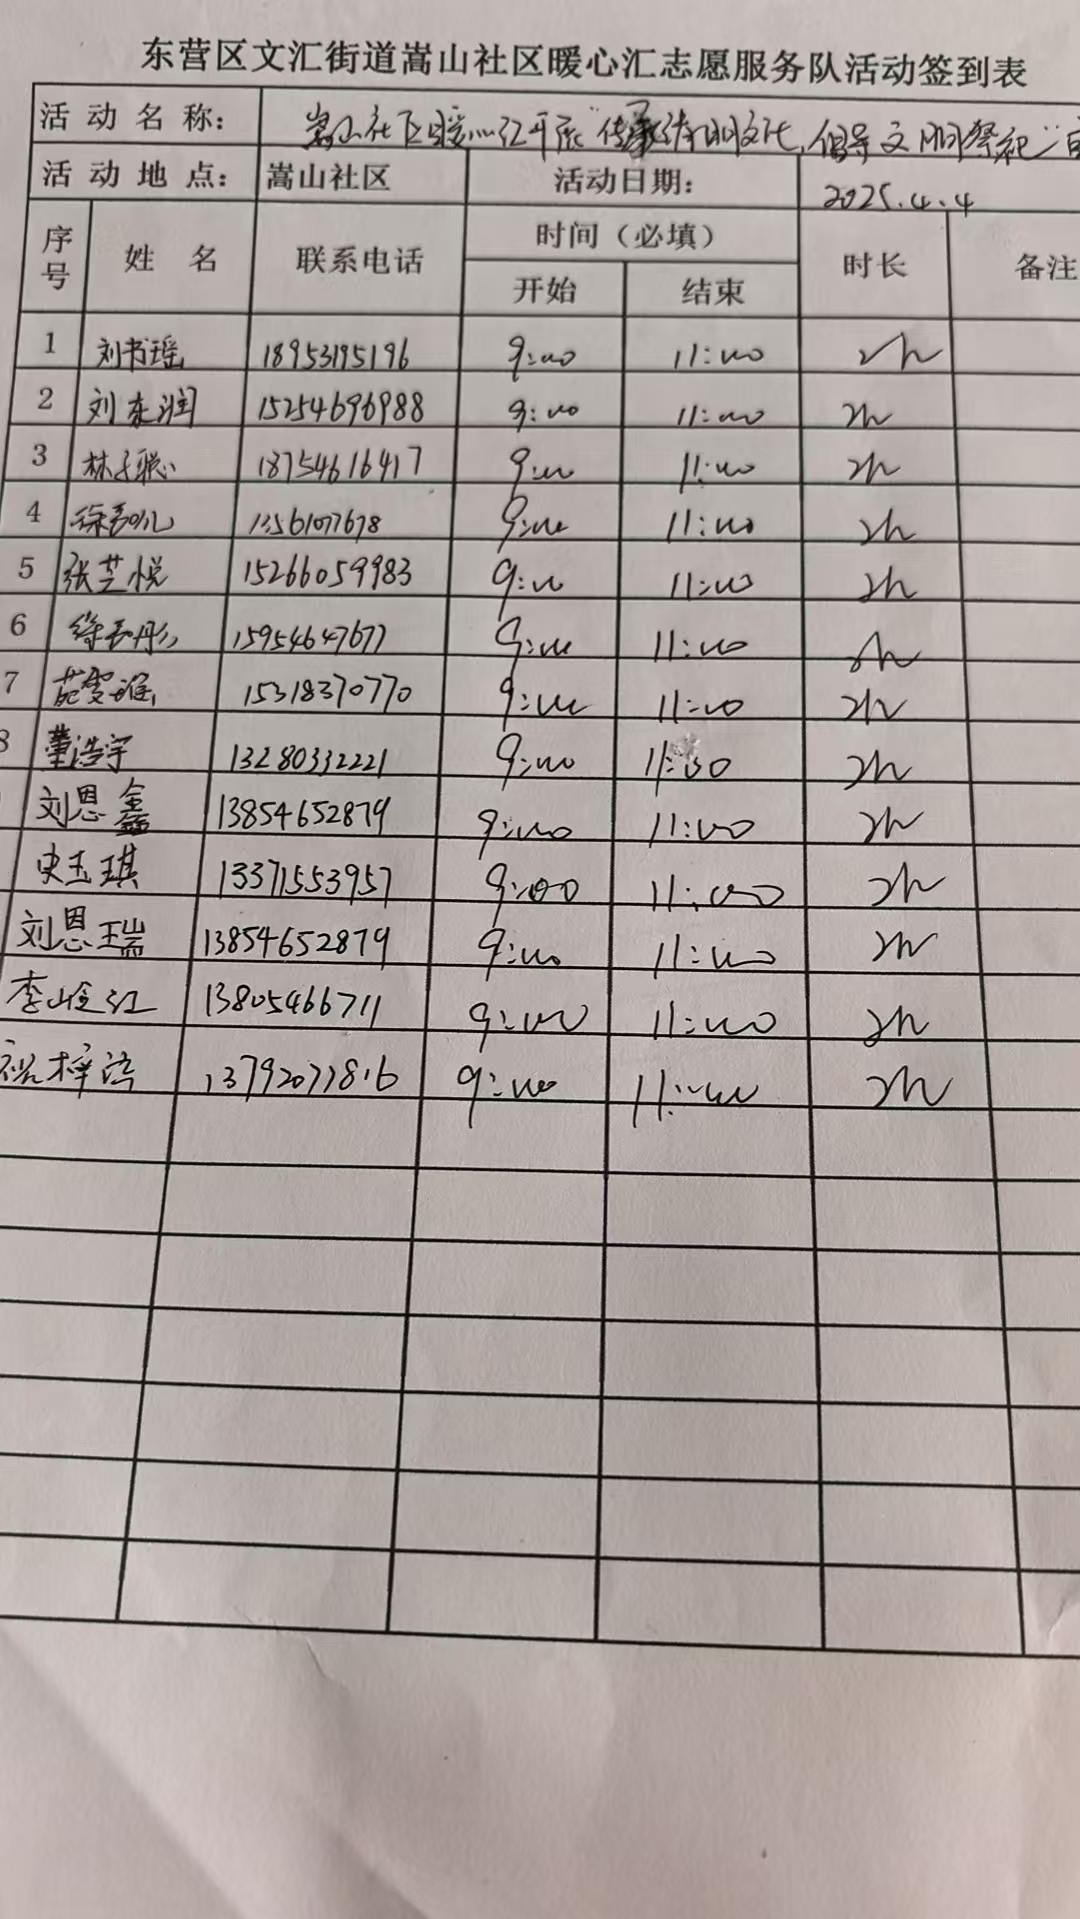 东营区文汇街道嵩山社区暖心汇志愿服务队活动签到表
活动名称: 嵩山社区暖心汇开展"传承清明文化,倡导文明祭祀"
活动地点: 嵩山社区 活动日期: 2025.4.4
序号 姓名 联系电话 时间(必填) 时长 备注
开始 结束
1 刘书瑶 18953195196 9:00 11:00 2h
2 刘东润 15254696988 9:00 11:00 2h
3 林子聪 18754616417 9:00 11:00 2h
4 13561077678 9:00 11:00 2h
5 张芝悦 15266059983 9:00 11:00 2h
6 15954647677 9:00 11:00 2h
7 15318370770 9:00 11:00 2h
8 董浩宇 13280332221 9:00 11:00 2h
刘恩鑫 13854652879 9:00 11:00 2h
史玉琪 13371553957 9:00 11:00 2h
刘恩瑞 13854652879 9:00 11:00 2h
13805466711 9:00 11:00 2h
祝梓涵 13792077816 9:00 11:00 2h